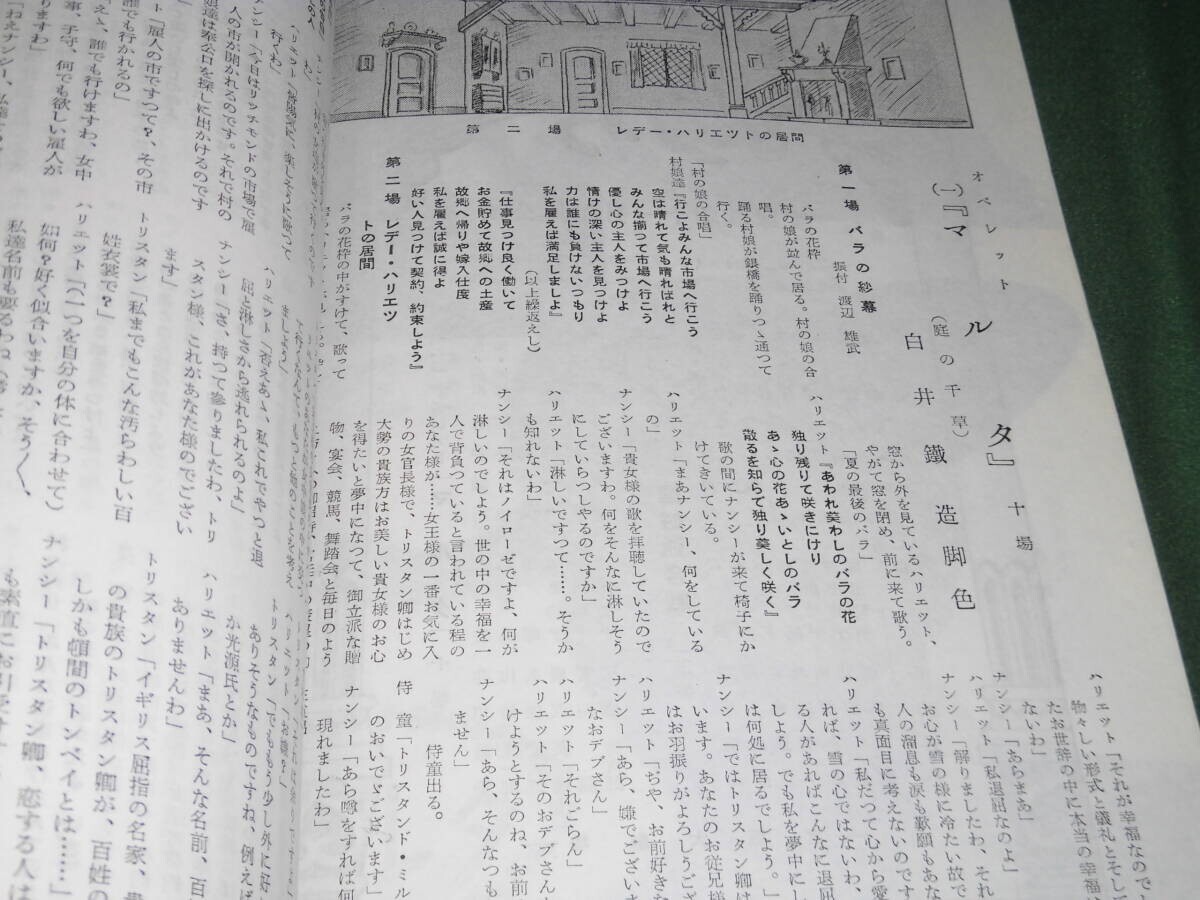 第二場 レデー・ハリエツトの居間
オペレット
(一)『マルタ』十場
(庭の千草)
白井鐵造脚色
第一場 バラの紗幕
振付 渡辺雄武
バラの花枠
村の娘が並んで居る。村の娘の合
唱。
踊る村娘が銀橋を踊りつゝ通つて
行く。
「村の娘の合唱」
村娘達『行こよみんな市場へ行こう
空は晴れて気も晴ればれと
みんな揃つて市場へ行こう
優し心の主人をみつけよ
情けの深い主人を見つけよ
力は誰にも負けないつもり
私を雇えば満足しましよ』
(以上繰返えし)
『仕事見つけ良く働いて
お金貯めて故郷への土産
故郷へ帰りや嫁入仕度
私を雇えば誠に得よ
好い人見つけて契約、約束しよう』
第二場 レデー・ハリエツ
トの居間
バラの花枠の中がすけて、歌って
窓から外を見ているハリエット、
やがて窓を閉め、前に来て歌う。
「夏の最後のバラ」
ハリエット『あわれ美わしのバラの花
独り残りて咲きにけり
あゝ心の花あゝいとしのバラ
散るを知らて独り美しく咲く』
歌の間にナンシーが来て椅子にか
けてきいている。
ハリエット「まあナンシー、何をしている
の」
ナンシー「貴女様の歌を拝聴していたので
ございますわ。何をそんなに淋しそう
にしていらつしやるのですか」
ハリエット「淋しいですつて……。そうか
も知れないわ」
ナンシー「それはノイローゼですよ、何が
淋しいのでしよう。世の中の幸福を一
人で背負つていると言われている程の
あなた様が……女王様の一番お気に入
りの女官長様で、トリスタン卿はじめ
大勢の貴族方はお美しい貴女様のお心
を得たいと夢中になつて、御立派な贈
物、宴会、競馬、舞踏会と毎日のよう
ハリエット「それが幸福なので
物々しい形式と儀礼とそして
たお世辞の中に本当の幸福は
ないわ」
ナンシー「あらまあ」
ハリエット「私退屈なのよ」
ナンシー「解りましたわ、それ
お心が雪の様に冷たい故で
人の溜息も涙も歎願もあな
も真面目に考えないのです
ハリエット「私だつて心から愛
れば、雪の心ではないわ、
る人があればこんなに退屈
しよう。でも私を夢中にし
は何処に居るでしよう。」
ナンシー「ではトリスタン卿は
います。あなたのお従兄様
はお羽振りがよろしうござ
ハリエット「ぢや、お前好きな
なおデブさん」
ナンシー「あら、嫌でございま
ハリエット「それごらん」
ハリエット「そのおデブさん
けようとするのね、お前
ナンシー「あら、そんなつも
ません」
侍童出る。
侍 童「トリスタンド・ミル
のおいでゞございます」
ナンシー「あら噂をすれば何
現れましたわ」
行くわ」
ナンシー「今日はリッチモンドの市場で雇
人の市が開かれるのです。それで村の
娘達は奉公口を探しに出かけるのです
「雇人の市ですつて?、その市
誰でも行かれるの」
えゝ、誰でも行けますわ、女中
事、子守、何でも欲しい雇人が
りますわ」
「ねえナンシー、
ハリエット「否えあゝ、私これでやつと退
屈と淋しさから逃れられるのよ」
ナンシー「さ、持つて参りましたわ、トリ
スタン様、これがあなた様のでござい
ます」
トリスタン「私までもこんな汚らわしい百
姓衣裳で?」
ハリエット「(一つを自分の体に合わせて)
如何?好く似合いますか、そう〱、
私達名前も要るわね
トリスタン「でももう少し外に好
ありそうなものですね、例えば
か光源氏とか」
ハリエット「まあ、そんな名前、百
ありませんわ」
トリスタン「イギリス屈指の名家、
の貴族のトリスタン卿が、百姓の
しかも頓間のトンベイとは……」
ナンシー「トリスタン卿、恋する人は
も素直にお引